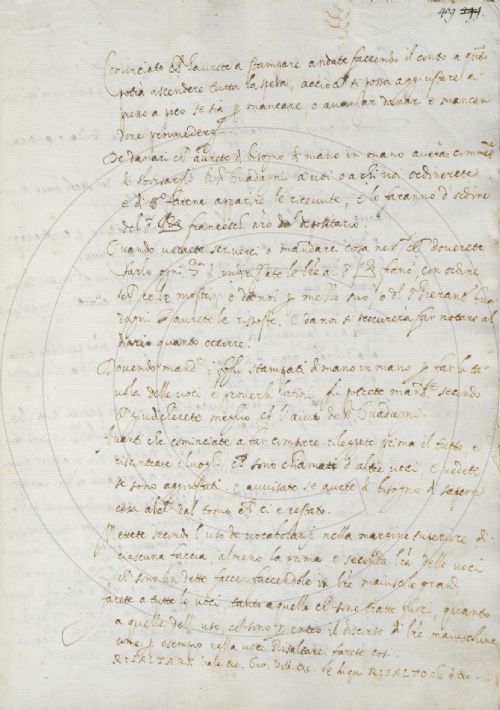 409
Cominciato ch' haurete a stampare andate faccendo il conto a quanto
potrà ascendere tutta la spesa, acciò ch' si possa aggiustare a
peso a poco se sia p mancare, o avanzar danari e mancan
dove provvedere
De danari ch' avrete di bisogno di mano in mano averà commess.ne
di sborsarli Guadagni a voi o a chi voi ordinerete
e di farvene apparire le ricevute, e le faranno d'ordine
del Franceschi nro depositario
Quando vorrete scriverci o mandare cosa ch' doverete
farlo ogni indirizzate le lre al con ordine
ce le mostri, e da noi p mezzo suo, o del Pierant. Gua
dagni avrete le risposte, e da noi si procurerà far notare al
Diario quanto occorre.
Dovendo mand. fogli stampati di mano in mano p far la ta
vola delle voci e proverbi latini si potete mand.e secondo
giudicherete meglio co l'aiuto de Guadagni
Avanti che cominciate a far compire rileggete prima il tutto, e
riscontrate i luoghi, ch' sono chiamati d'altre voci e vedete
se sono aggiustati, e avvisate se avete di bisogno di sapere
cosa alc.a dal tomo ch' ci è restato.
Mettete secondo l'uso de vocabolarij nella margine superiore di
ciascuna faccia, almeno la prima e seconda lra delle voci
ch' sono in dette facce faccendole in lre maiuscole grandi
farete a tutte le voci, tanto a quelle ch' sono tratte fuori, quanto
a quelle dell'uso, ch' sono p entro il discorso di lre maiuscoline
come p esempio nella voce Risaltare, farete così.
RISALTARE Vale &c. Gio. Vill. &c. e di qui RISALTO che è &c.